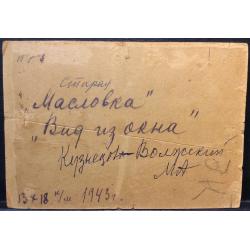 Старая
"Масловка"
"Вид из окна"
Кузнецов-Волжский
МА
13×18 к/м 1943г.